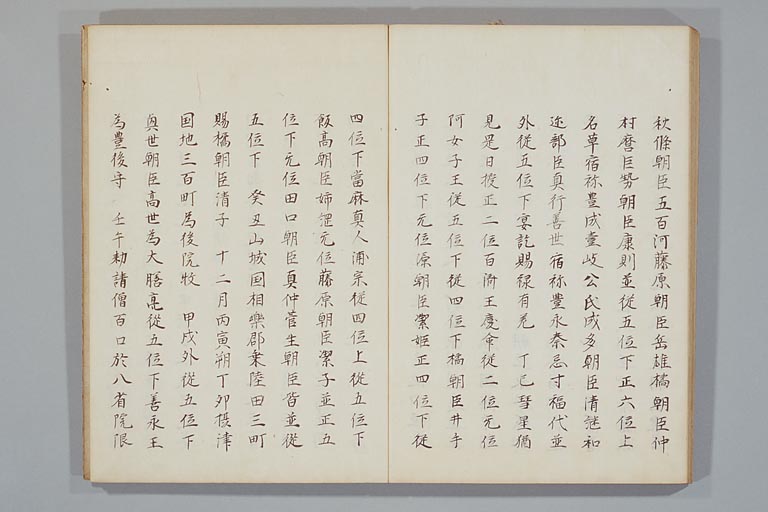 秋條朝臣五百河藤原朝臣岳雄橘朝臣仲
村麿巨勢朝臣康則並從五位下正六位上
名草宿祢豊成壹岐公氏成多朝臣清継和
迩部臣真行善世宿祢豊永秦忌寸福代並
外從五位下宴訖賜禄有差　丁巳彗星猶
見是日授正二位百済王慶命從二位无位
阿女子王從五位下從四位下橘朝臣井手
子正四位下无位源朝臣潔姫正四位下從
四位下當麻真人浦宗從四位上從五位下
飯高朝臣姉綱无位藤原朝臣潔子並正五
位下无位田口朝臣真仲菅生朝臣皆並從
五位下　癸丑山城国相樂郡乗陸田三町
賜橘朝臣清子　十二月丙寅朔丁卯摂津
国地三百町為後院牧　甲戌外從五位下
奥世朝臣高世為大膳亮從五位下善永王
為豊後守　壬午勅請僧百口於八省院限